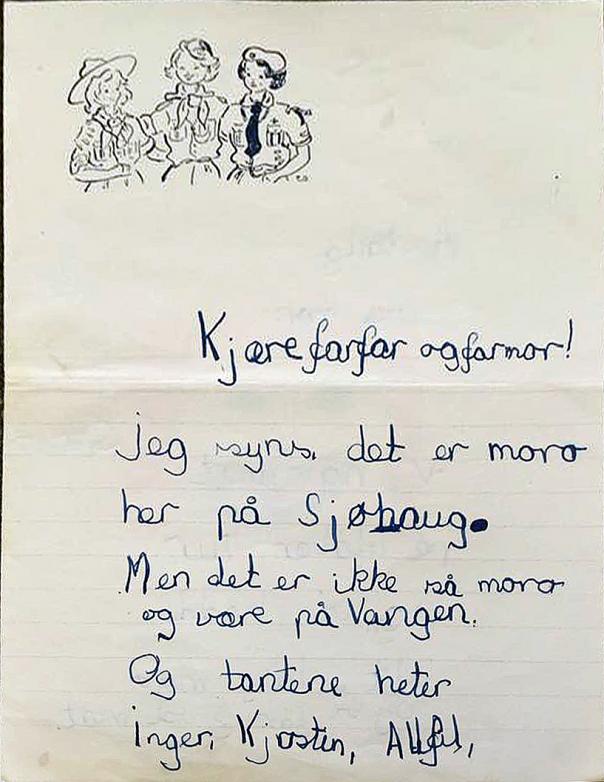 Kjære farfar og farmor!
Jeg syns, det er moro
her på Sjøhaug.
Men det er ikke så moro
og være på Vangen.
Og tantene heter
Inger, Kjersten,